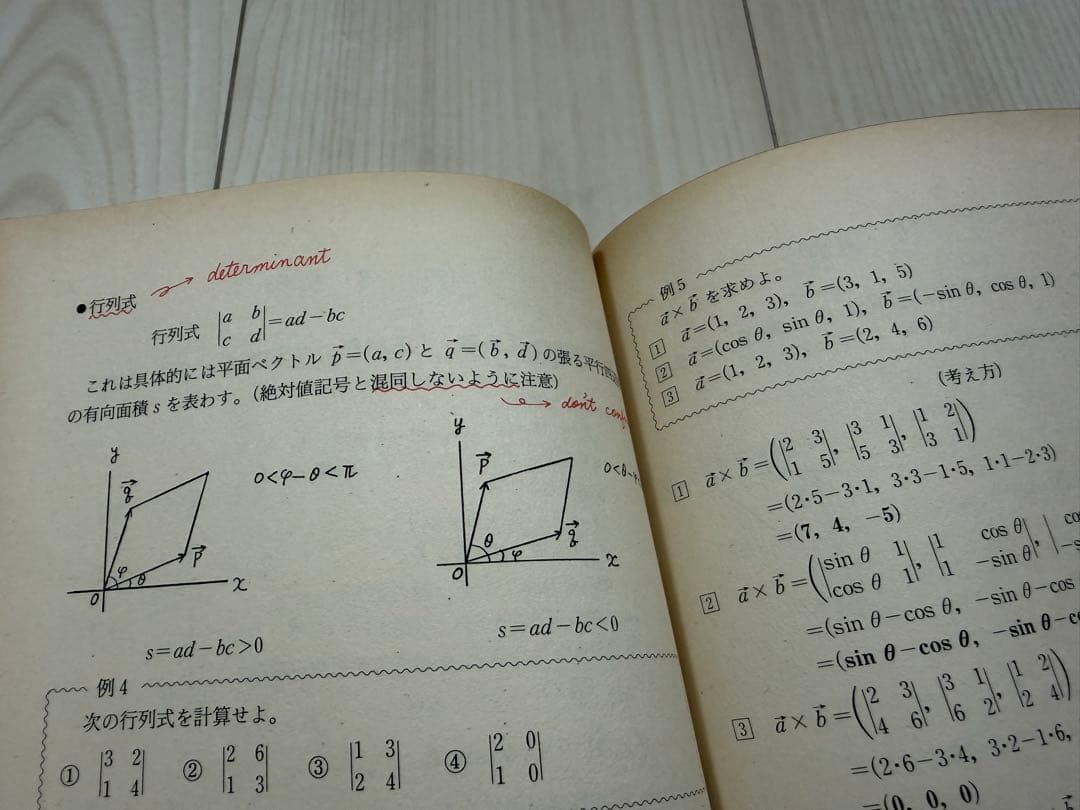 determinant
●行列式
行列式 |a b|
|c d|=ad−bc
これは具体的には平面ベクトル p→=(a, c) と q→=(b→, d→) の張る平行
の有向面積 s を表わす。(絶対値記号と混同しないように注意)
don't
y
q→
p→
φ
θ
O
x
0<φ−θ<π
s=ad−bc>0
y
p→
q→
θ
φ
O
x
0<θ−
s=ad−bc<0
例4
次の行列式を計算せよ。
① |3 2| ② |2 6| ③ |1 3| ④ |2 0|
|1 4| |1 3| |2 4| |1 0|
例5
a→×b→ を求めよ。
1 a→=(1, 2, 3), b→=(3, 1, 5)
2 a→=(cos θ, sin θ, 1), b→=(−sin θ, cos θ, 1)
3 a→=(1, 2, 3), b→=(2, 4, 6)
(考え方)
1 a→×b→=(|2 3|, |3 1|, |1 2|)
|1 5| |5 3| |3 1|
=(2·5−3·1, 3·3−1·5, 1·1−2·3)
=(7, 4, −5)
2 a→×b→=(|sin θ 1|, |1 cos θ|, |
|cos θ 1| |1 −sin θ|
=(sin θ−cos θ, −sin θ−cos
=(sin θ−cos θ, −sin θ−c
3 a→×b→=(|2 3|, |3 1|, |1 2|)
|4 6| |6 2| |2 4|
=(2·6−3·4, 3·2−1·6,
=(0, 0, 0)